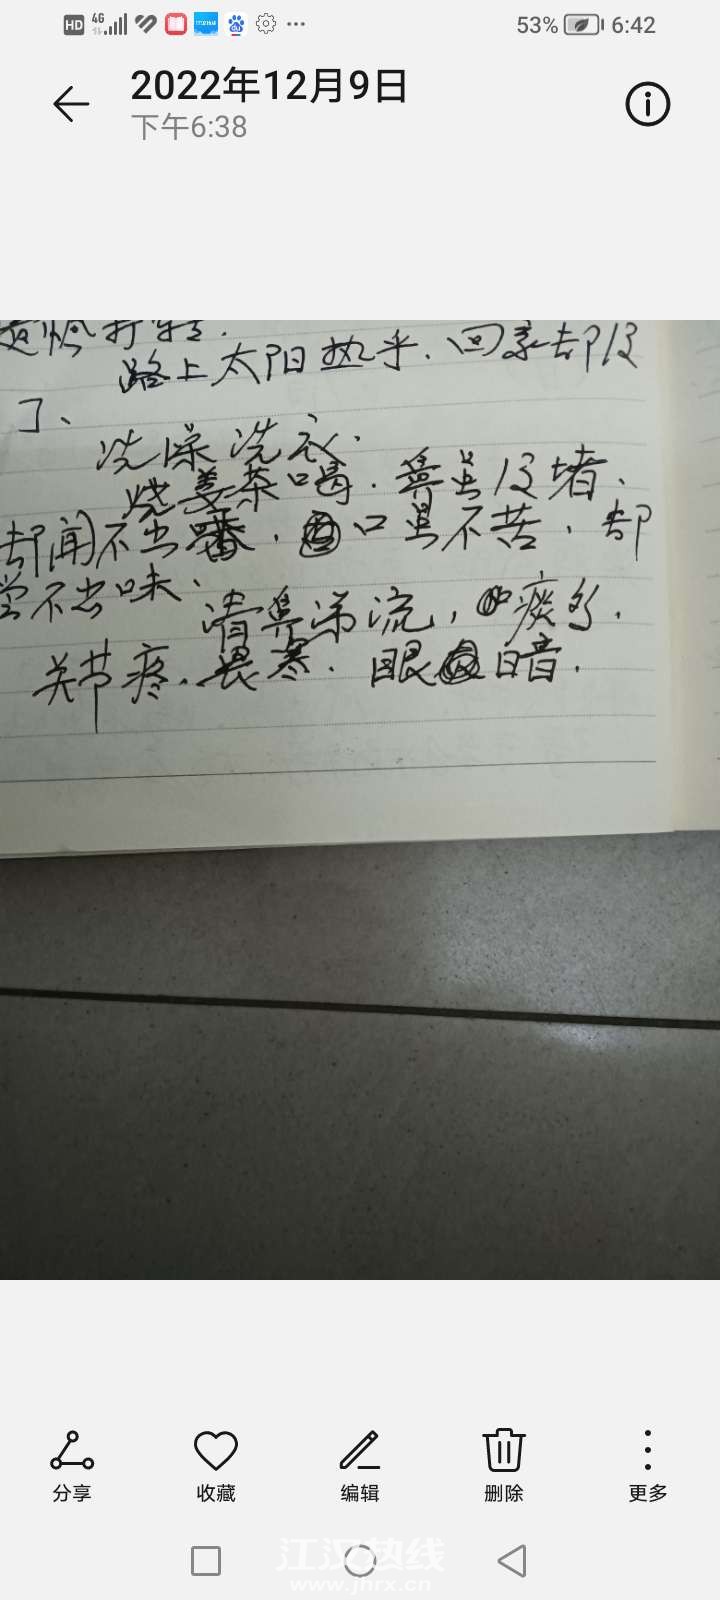 HD 4G 53% 6:42
2022年12月9日
下午6:38
路上太阳热乎.回家却没
了、
洗澡洗衣.
烧姜茶喝.鼻虽没堵、
却闻不出味,口虽不苦,却
尝不出味、
清鼻涕流,痰多.
关节疼.畏寒.眼暗.
分享 收藏 编辑 删除 更多
江汉热线
www.jhrx.cn